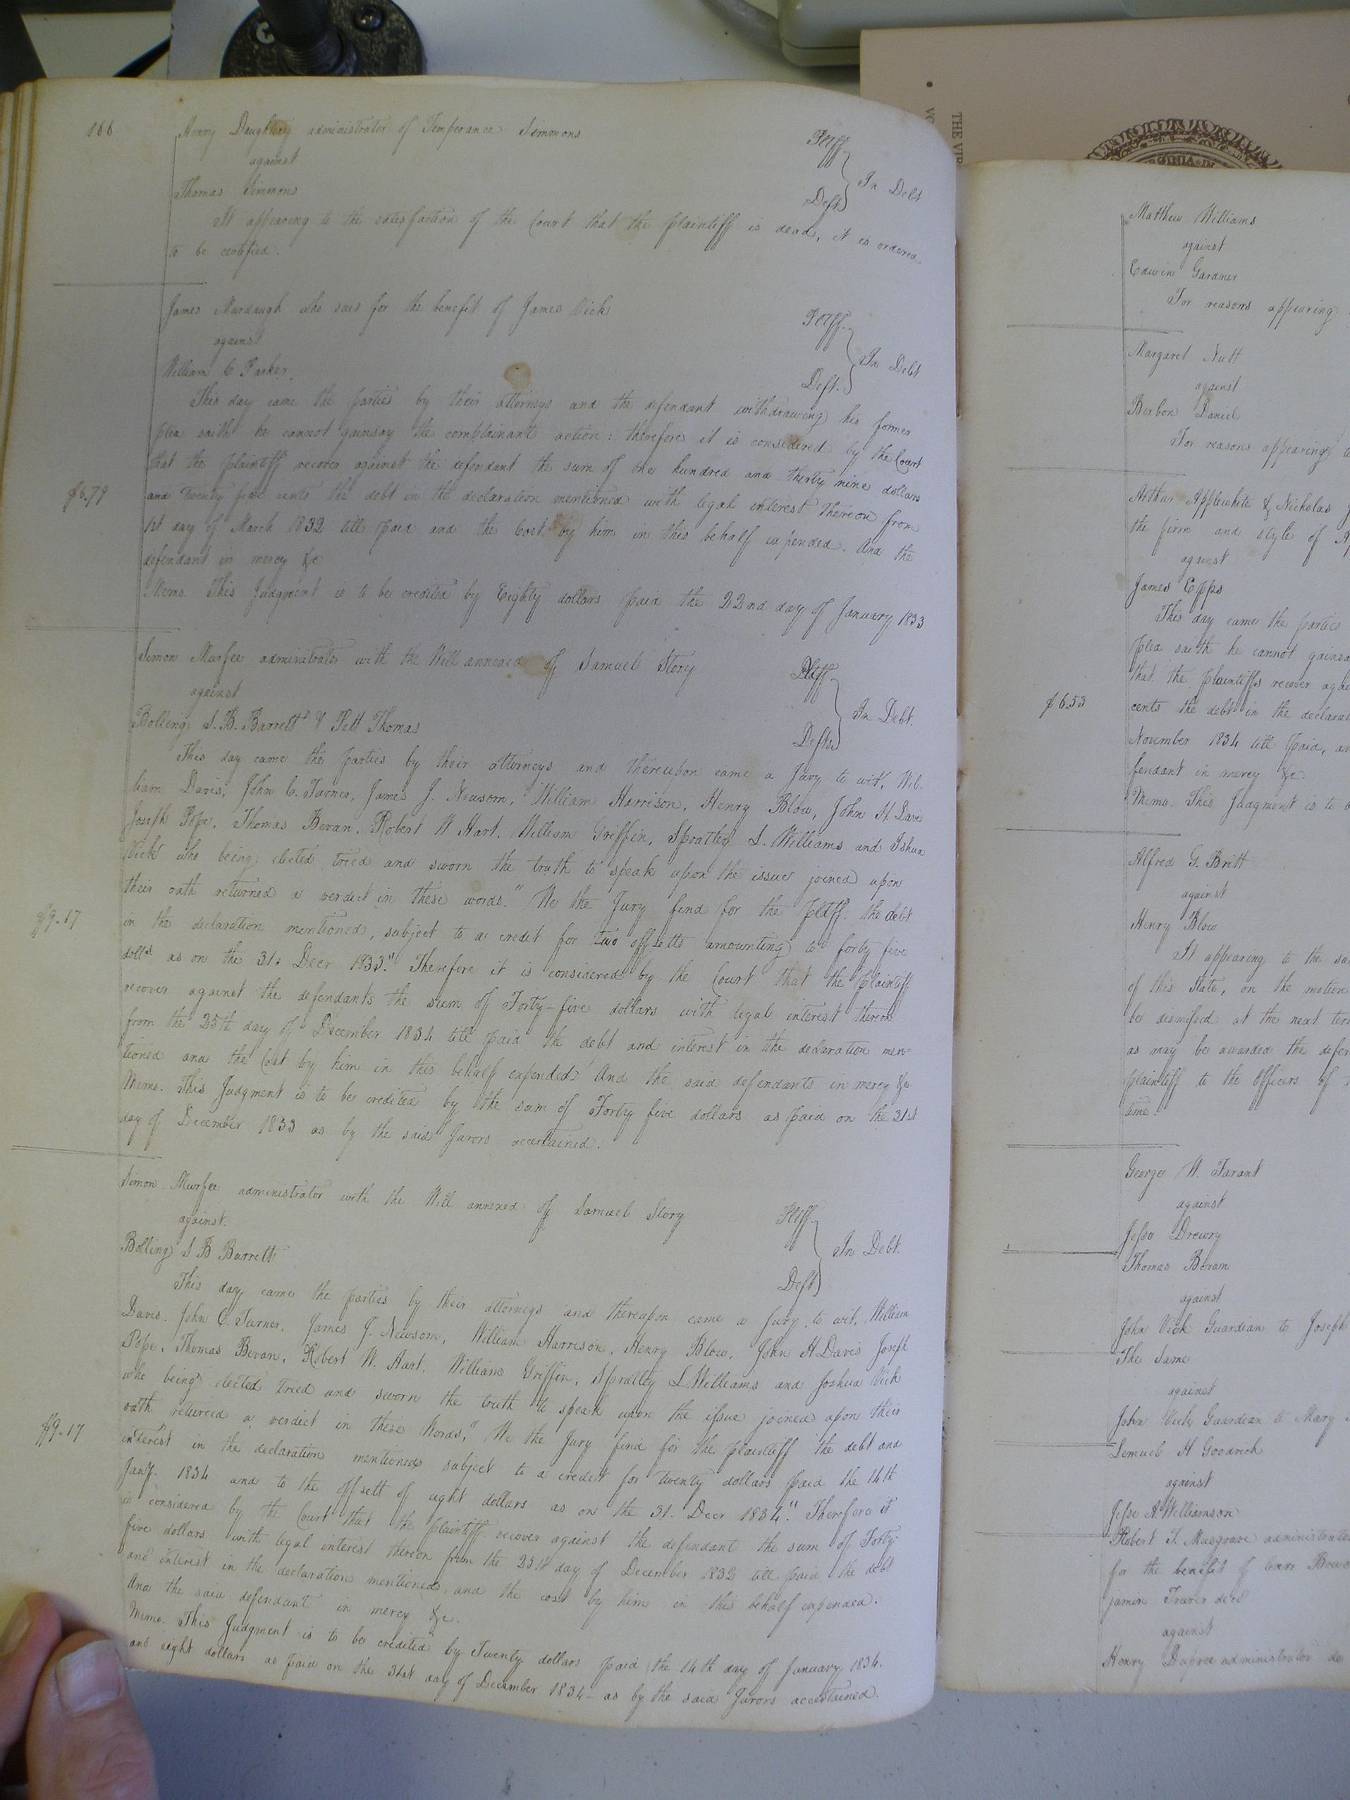 166
Henry Daughtrey administrator of Temperance Simmons Pltff
against
Thomas Simmons Deft
In Debt
It appearing to the satisfaction of the Court that the plaintiff is dead, it is ordered
to be certified.
James Murdaugh who sues for the benefit of James Vick Pltff.
against
William C Parker. Deft.
In Debt
This day came the parties by their attorneys and the defendant withdrawing his former
plea saith he cannot gainsay the complainants action: therefore it is considered by the Court
that the plaintiff recover against the defendant the sum of one hundred and thirty nine dollars
$5.79
and twenty five cents the debt in the declaration mentioned with legal interest thereon from
1st day of March 1832 till paid and the Cost by him in this behalf expended. And the
defendant in mercy &c
Memo. This Judgment is to be credited by Eighty dollars paid the 22nd day of January 1833
Simon Murfee administrator with the Will annexed of Samuel Story Pltff
against
Bolling S. B. Barrett & Pett Thomas Defts
In Debt
This day came the parties by their attorneys and thereupon came a Jury to wit, Wil-
liam Davis, John C. Turner, James J. Newsom, William Harrison, Henry Blow, John H Davis
Joseph Pope, Thomas Bevan, Robert W Hart, William Griffin, Spratley S. Williams and Joshua
Vick who being elected tried and sworn the truth to speak upon the issue joined upon
their oath returned a verdict in these words. "We the Jury find for the pltff. the debt
$9.17
in the declaration mentioned, subject to a credit for two offsetts amounting to forty five
dolls as on the 31st Decr 1833." Therefore it is considered by the Court that the plaintiff
recover against the defendants the sum of Forty-five dollars with legal interest thereon
from the 25th day of December 1831 till paid the debt and interest in the declaration men-
tioned and the Cost by him in this behalf expended. And the said defendants in mercy &c
Memo. This Judgment is to be credited by the sum of Forty five dollars as paid on the 31st
day of December 1833 as by the said Jurors ascertained.
Simon Murfee administrator with the Will annexed of Samuel Story Pltff
against.
Bolling S B Barrett Deft
In Debt.
This day came the parties by their attorneys and thereupon came a Jury, to wit, William
Davis, John C. Turner, James J. Newsom, William Harrison, Henry Blow, John H Davis Joseph
Pope, Thomas Bevan, Robert W. Hart, William Griffin, Spratley S Williams and Joshua Vick
who being elected tried and sworn the truth to speak upon the issue joined upon their
oath returned a verdict in these Words, "We the Jury find for the plaintiff the debt and
$9.17
interest in the declaration mentioned subject to a credit for twenty dollars paid the 14th
Jany. 1834 and to the offsett of eight dollars as on the 31. Decr 1834." Therefore it
is considered by the Court that the plaintiff recover against the defendant the sum of Forty-
five dollars with legal interest thereon from the 25th day of December 1832 till paid the debt
and interest in the declaration mentioned, and the cost by him in this behalf expended.
And the said defendant in mercy &c.
Memo. This Judgment is to be credited by Twenty dollars paid the 14th day of January 1834.
and eight dollars as paid on the 31st day of December 1834 - as by the said Jurors ascertained.
THE VIR
VIRGINIA
Matthew Williams
against
Edwin Gardner
For reasons appearing
Margaret Nutt
against
Berbon Daniel
For reasons appearing
Arthur Applewhite & Nicholas
the firm and style of
against
James Epps
This day came the parties
plea saith he cannot gainsa
that the plaintiffs recover agai
$6.53
cents the debt in the declarat
November 1834 till paid, an
fendant in mercy &c
Memo. This Judgment is to b
Alfred G. Britt
against
Henry Blow
It appearing to the sa
of this State, on the motion
be dismissed at the next ter
as may be awarded the defen
plaintiff to the Officers of
time
George W. Tarant
against
Jesse Drewry
Thomas Bevan
against
John Vick Guardian to Joseph
The Same
against
John Vick Guardian to Mary
Lemuel H Goodrich
against
Jesse A. Williamson
Robert T. Musgrave administrator
for the benefit of
against
Henry Dupree administrator de